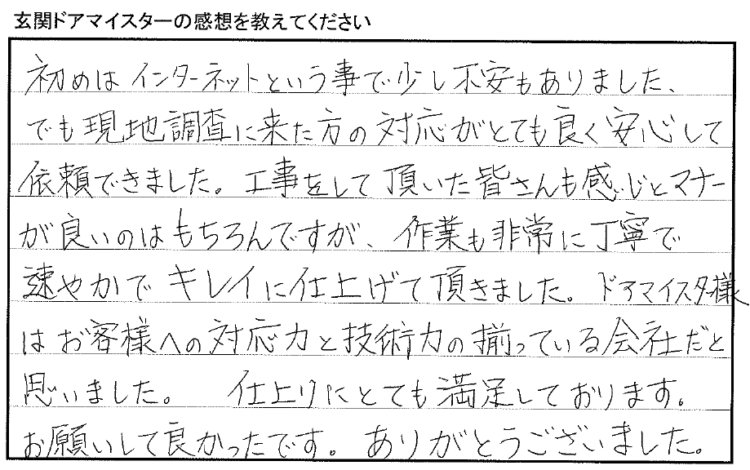 玄関ドアマイスターの感想を教えてください
初めはインターネットという事で少し不安もありました、
でも現地調査に来た方の対応がとても良く安心して
依頼できました。工事をして頂いた皆さんも感じとマナー
が良いのはもちろんですが、作業も非常に丁寧で
速やかでキレイに仕上げて頂きました。ドアマイスタ様
はお客様への対応力と技術力の揃っている会社だと
思いました。 仕上りにとても満足しております。
お願いして良かったです。ありがとうございました。